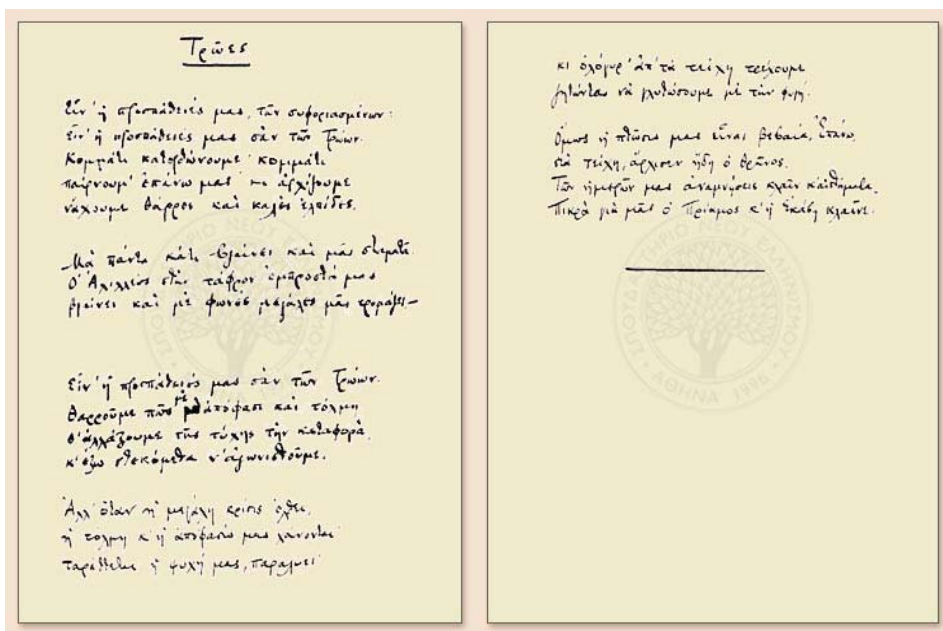 Τρῶες
Εἶν' ἡ προσπάθειές μας, τῶν συφοριασμένων·
εἶν' ἡ προσπάθειές μας σὰν τῶν Τρώων.
Κομμάτι κατορθώνουμε· κομμάτι
παίρνουμ' ἐπάνω μας· κι ἀρχίζουμε
νἄχουμε θάρρος καὶ καλὲς ἐλπίδες.
Μὰ πάντα κάτι βγαίνει καὶ μᾶς σταματᾶ.
Ὁ Ἀχιλλεὺς στὴν τάφρον ἐμπροστά μας
βγαίνει καὶ μὲ φωνὲς μεγάλες μᾶς τρομάζει.—
Εἶν' ἡ προσπάθειές μας σὰν τῶν Τρώων.
Θαρροῦμε πῶς μὲ ἀπόφασι καὶ τόλμη
θ' ἀλλάξουμε τῆς τύχης τὴν καταφορά,
κ' ἔξω στεκόμεθα ν' ἀγωνισθοῦμε.
Ἀλλ' ὅταν ἡ μεγάλη κρίσις ἔλθει,
ἡ τόλμη κ' ἡ ἀπόφασίς μας χάνονται·
ταράττεται ἡ ψυχή μας, παραλυεῖ·
κι ὁλόγυρ' ἀπ' τὰ τείχη τρέχουμε
ζητώντας νὰ γλυτώσουμε μὲ τὴν φυγή.
Ὅμως ἡ πτῶσις μας εἶναι βεβαία. Ἐπάνω,
στὰ τείχη, ἄρχισεν ἤδη ὁ θρῆνος.
Τῶν ἡμερῶν μας ἀναμνήσεις κλαῖν κ' αἰσθήματα.
Πικρὰ γιὰ μᾶς ὁ Πρίαμος κ' ἡ Ἑκάβη κλαῖνε.
ΣΠΟΥΔΑΣΤΗΡΙΟ ΝΕΟΥ ΕΛΛΗΝΙΣΜΟΥ • ΑΘΗΝΑ 1996 •
ΣΠΟΥΔΑΣΤΗΡΙΟ ΝΕΟΥ ΕΛΛΗΝΙΣΜΟΥ • ΑΘΗΝΑ 1996 •